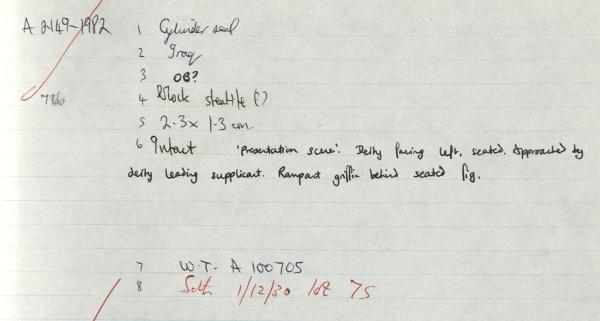 A 2149-1982 1 Cylinder seal
2 Iraq
3 OB?
7860 4 Black steatite (?)
5 2.3 x 1.3 cm.
6 Intact 'Presentation scene'. Deity facing left, seated. Approached by
deity leading supplicant. Rampant griffin behind seated fig.
7 W.T. A 100705
8 Soth 1/12/30 lot 75